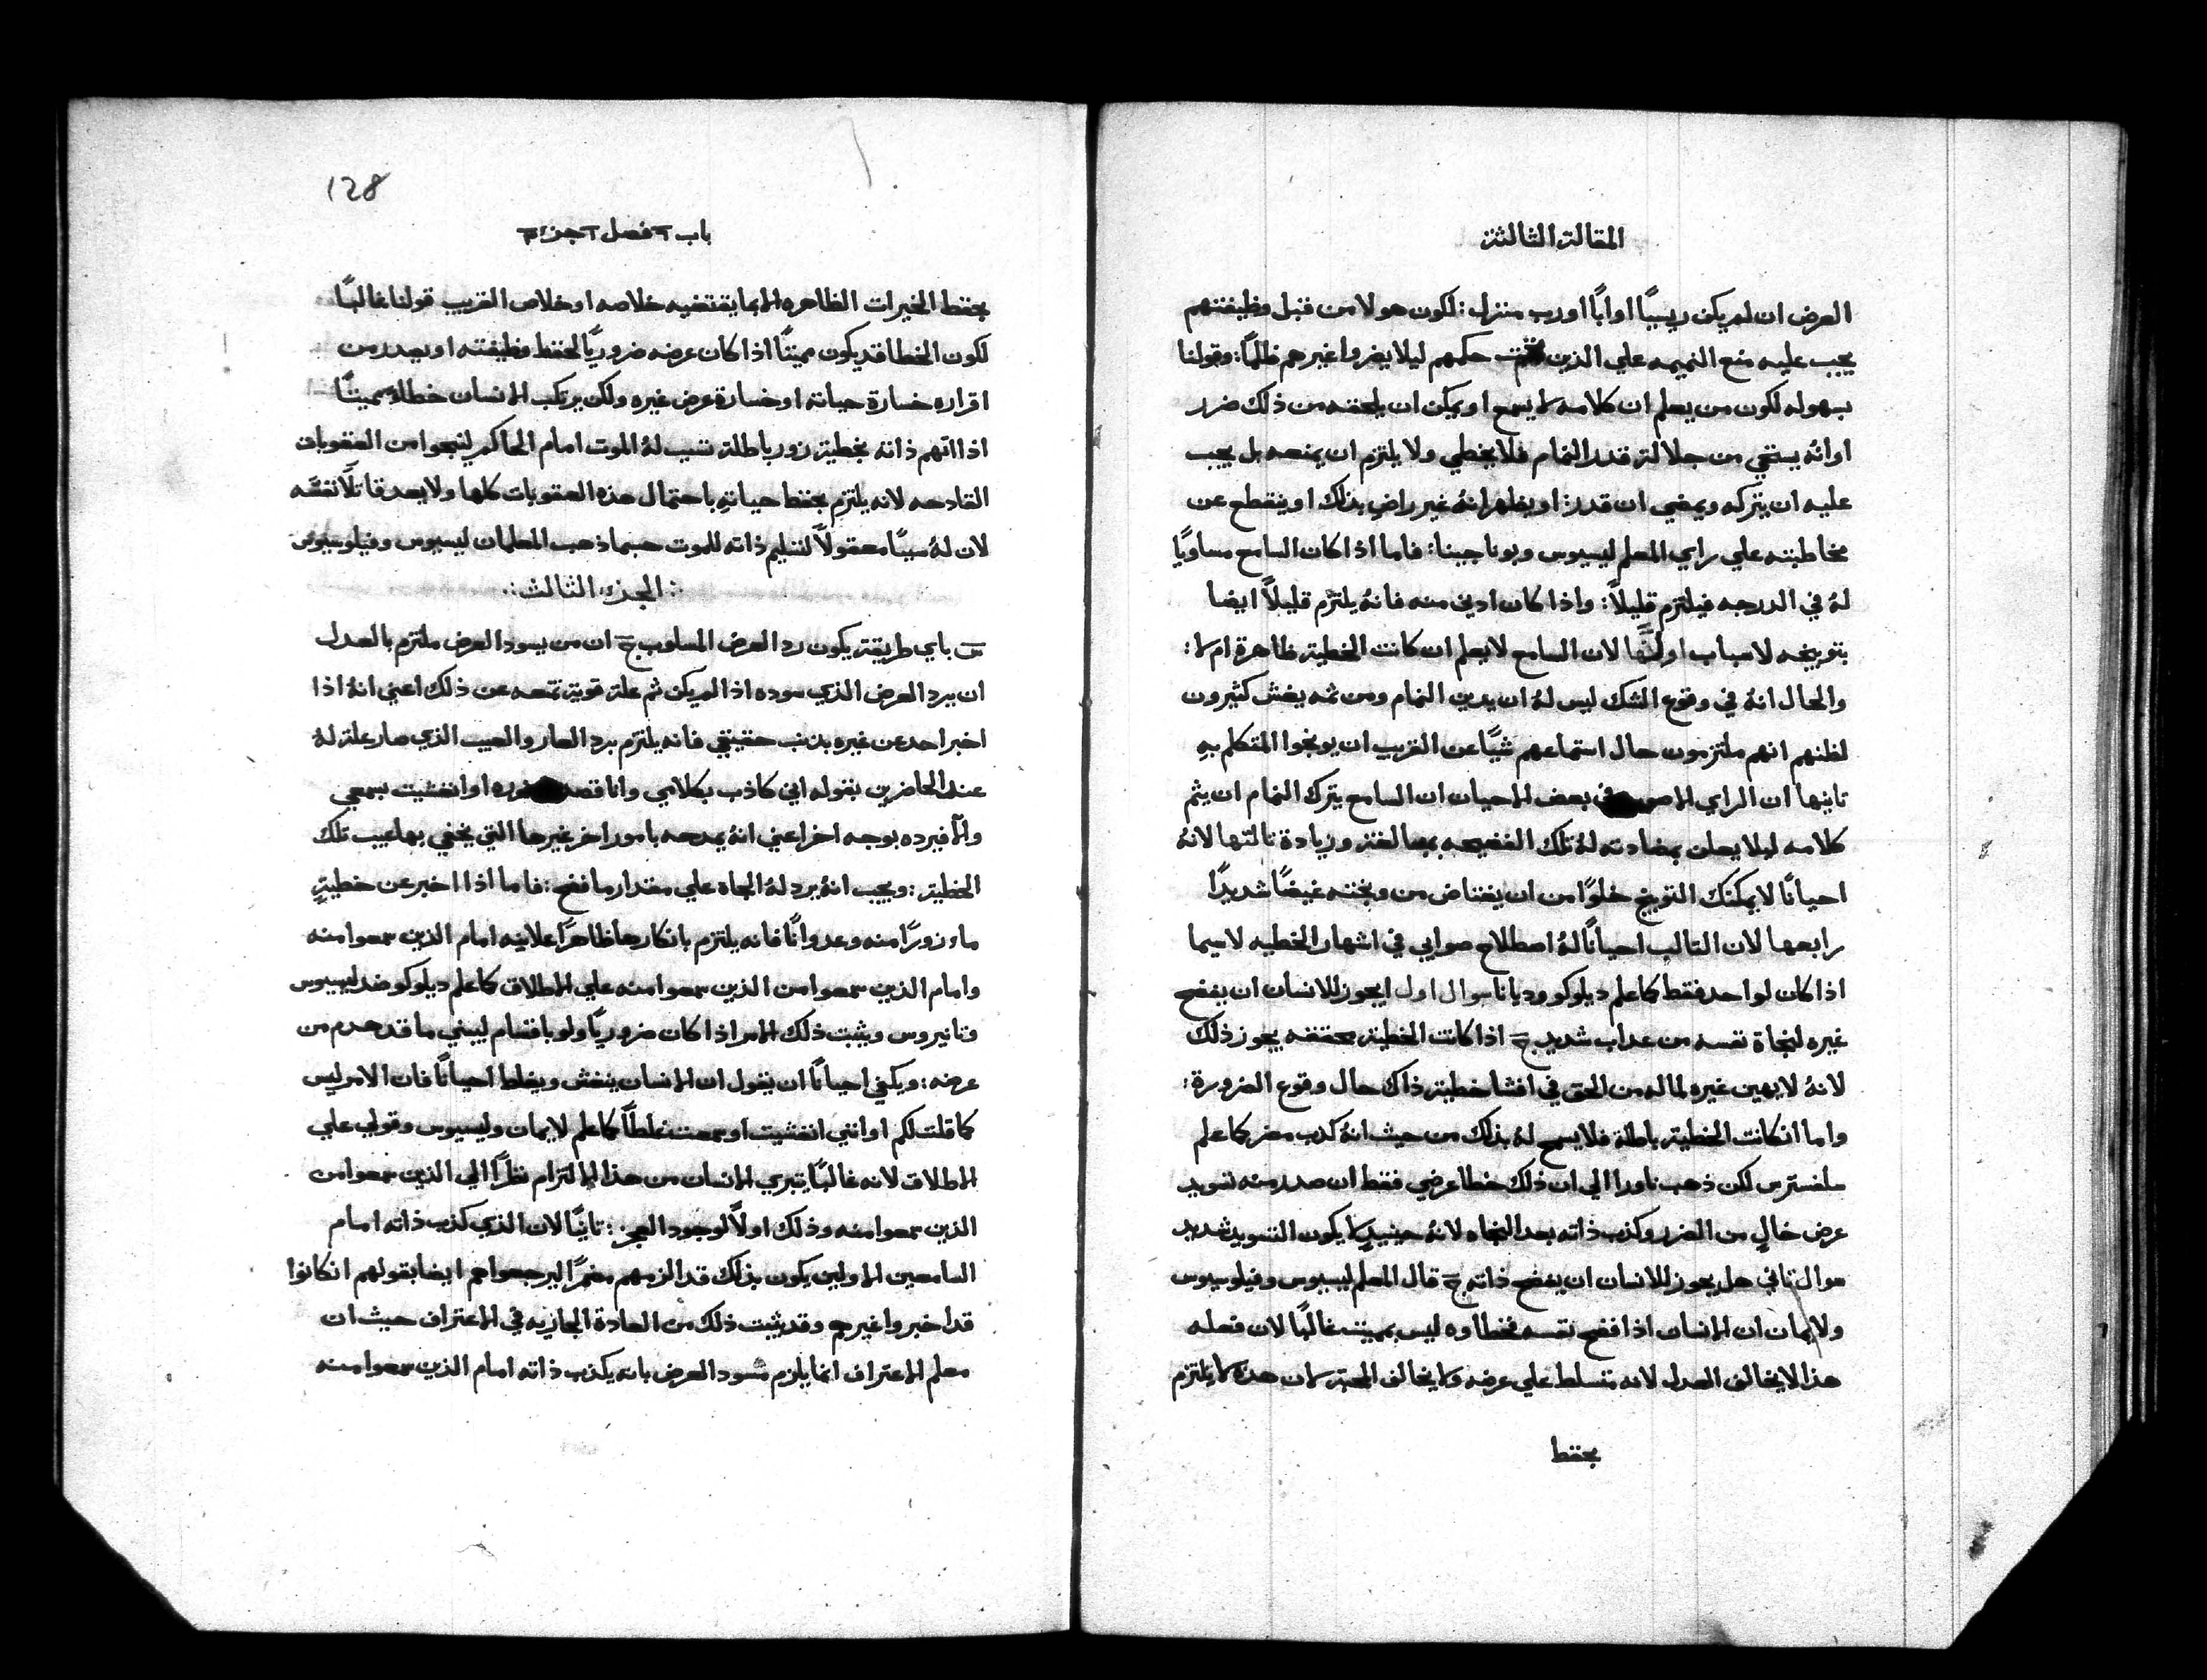 المقالة الثالثة
العرض ان لم يكن ريسيًا او ابًا اورب منزل: لكون هولا من قبل وظيفتهم
يجب عليه منع النميمه علي الذين تحت حكمهم ليلا يضروا غيرهم ظلمًا: وقولنا
بسهوله لكون من يعلم ان كلامه لا يسمع او يمكن ان يلحقه من ذلك ضرر
اوانه يستحي من جلالة قدر النمام فلا يخطي ولا يلتزم ان يمنعه بل يجب
عليه ان يتركه ويمضي ان قدر: او يظهر انهُ غير راضٍ بذلك او ينقطع عن
مخاطبته علي راي المعلم ليسيوس وبوناجينا: فاما اذا كان السامع مساويًا
لهُ في الدرجه فيلتزم قليلاً: واذا كان ادني منه فانهُ يلتزم قليلاً ايضا
بتوبيخه لاسباب اولها لان السامع لا يعلم ان كانت الخطية ظاهرة ام لا:
والحال انهُ في وقوع الشك ليس لهُ ان يدين النمام ومن ثمه يغش كثيرون
لظنهم انهم ملتزمون حال استماعهم شيًا عن القريب ان يوبخوا المتكلم بهِ
ثانيها ان الراي في بعض الاحيان ان السامع يترك النمام ان يتم
كلامه ليلا يعلن بمضادته لهُ تلك الفضيحه بمبالغة وزيادة ثالثها لانهُ
احيانًا لا يمكنك التوبيخ خلوًا من ان يغتاض من وبخته غيضًا شديدًا
رابعها لان الثالب احيانًا لهُ اصطلاح صوابي في اشهار الخطيه لاسيما
اذا كان لواحد فقط كما علم ديلوكو وديانا سوال اول ايجوز للانسان ان يفضح
غيره لنجاة نفسه من عداب شديد ج اذا كانت الخطية محققه يجوز ذلك
لانهُ لا يهين غيره لما له من الحق في افشا خطية ذاك حال وقوع الضرورة:
واما ان كانت الخطية باطلة فلا يسمح لهُ بذلك من حيث انهُ كدب مضر كما علم
سلفسترس لكن ذهب ناورا الي ان ذلك خطا عرضي فقط ان صدر منه تسويد
عرض خالٍ من الضرر وكذب ذاته بعد النجاه لانهُ حينيذٍ لا يكون التسويد شديد
سوال ثاني هل يجوز للانسان ان يفضح ذاته ج قال المعلم ليسيوس وفيلوسيوس
ولايمان ان الانسان اذا فضح نفسه فخطاوه ليس بمميته غالبًا لان فعله
هذا لا يخالف العدل لانه متسلط علي عرضه ولا يخالف المحبة لان هذه لا تلتزم
بحفظ
128
باب ٢ فصل ٢ جزء ٣
بحفظ الخيرات الظاهره الا بما يقتضيه خلاصه او خلاص القريب قولنا غالبًا
لكون الخطا قد يكون مميتًا اذا كان عرضه ضروريًا لحفظ وظيفته او يصدر من
اقراره خسارة حياته او خسارة عرض غيره ولكن يرتكب الانسان خطاءً مميتًا
اذا اتهم ذاته بخطية زور باطلة تسبب لهُ الموت امام الحاكم لينجوا من العقوبات
القادحه لانه يلتزم بحفظ حياتهِ باحتمال هذه العقوبات كلها ولا يعد قاتلاً نفسَه
لان لهُ سببًا معقولاً لتسليم ذاته للموت حسبما ذهب المعلمان ليسيوس وفيلوسيوس
∴ الجزء الثالث ∴
س باي طريقة يكون رد العرض المسلوب ج ان من يسود العرض ملتزم بالعدل
ان يرد العرض الذي سوده اذا لم يكن ثم علة قوية تمنعه عن ذلك اعني انهُ اذا
اخبر احد عن غيره بذنب حقيقي فانه يلتزم برد العار والعيب الذي صار علة لهُ
عند الحاضرين بقوله اني كاذب بكلامي وانا قصدت ضرره او انغشيت بسمعي
والّا فيرده بوجه اخر اعني انهُ يمدحه بامور اخر غيرها التي يخفي بها عيب تلك
الخطية: ويجب انهُ يرد لهُ الجاه علي مقدار ما فضح: فاما اذا اخبر عن خطيةٍ
ما زورًا منه وعدوانًا فانه يلتزم بانكارها ظاهرًا علانيه امام الذين سمعوا منه
وامام الذين سمعوا من الذين سمعوا منه علي الاطلاق كما علم ديلوكو ضد ليسيوس
وتانيروس ويثبت ذلك الامر اذا كان ضروريًا ولو باقسام ليبني ما قد هدم من
عرضه: ويكفي احيانًا ان يقول ان الانسان ينغش ويغلط احيانًا فان الامر ليس
كما قلت لكم او انني انغشيت او سمعت غلطًا كما علم لايمان وليسيوس وقولي علي
الاطلاق لانه غالبًا يتبري الانسان من هذا الالتزام نظرًا الي الذين سمعوا من
الذين سمعوا منه وذلك اولاً لوجود العجز: ثانيًا لان الذي كذب ذاته امام
السامعين الاولين يكون بذلك قد الزمهم مضمرًا ليرجعوا هم ايضا بقولهم ان كانوا
قد اخبروا غيرهم وقد يثبت ذلك من العادة الجاريه في الاعتراف حيث ان
معلم الاعتراف انما يلزم مسود العرض بانه يكذب ذاته امام الذين سمعوا منه